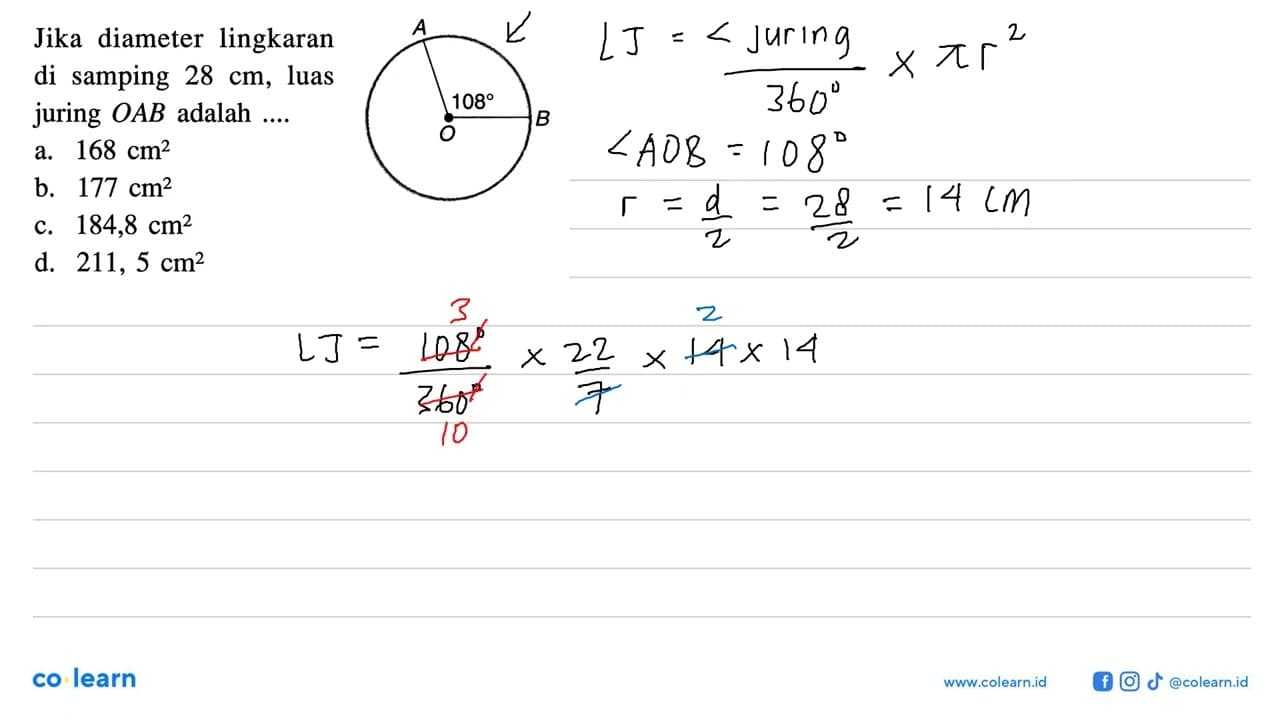 Jika diameter lingkaran
di samping 28 cm, luas
juring OAB adalah ....
a. 168 cm²
b. 177 cm²
c. 184,8 cm²
d. 211, 5 cm²
A
108°
B
O
LJ = < juring / 360° × πr²
<AOB = 108°
r = d/2 = 28/2 = 14 cm
3 2
LJ = 108°/360° × 22/7 × 14 × 14
10
co learn
www.colearn.id
@colearn.id